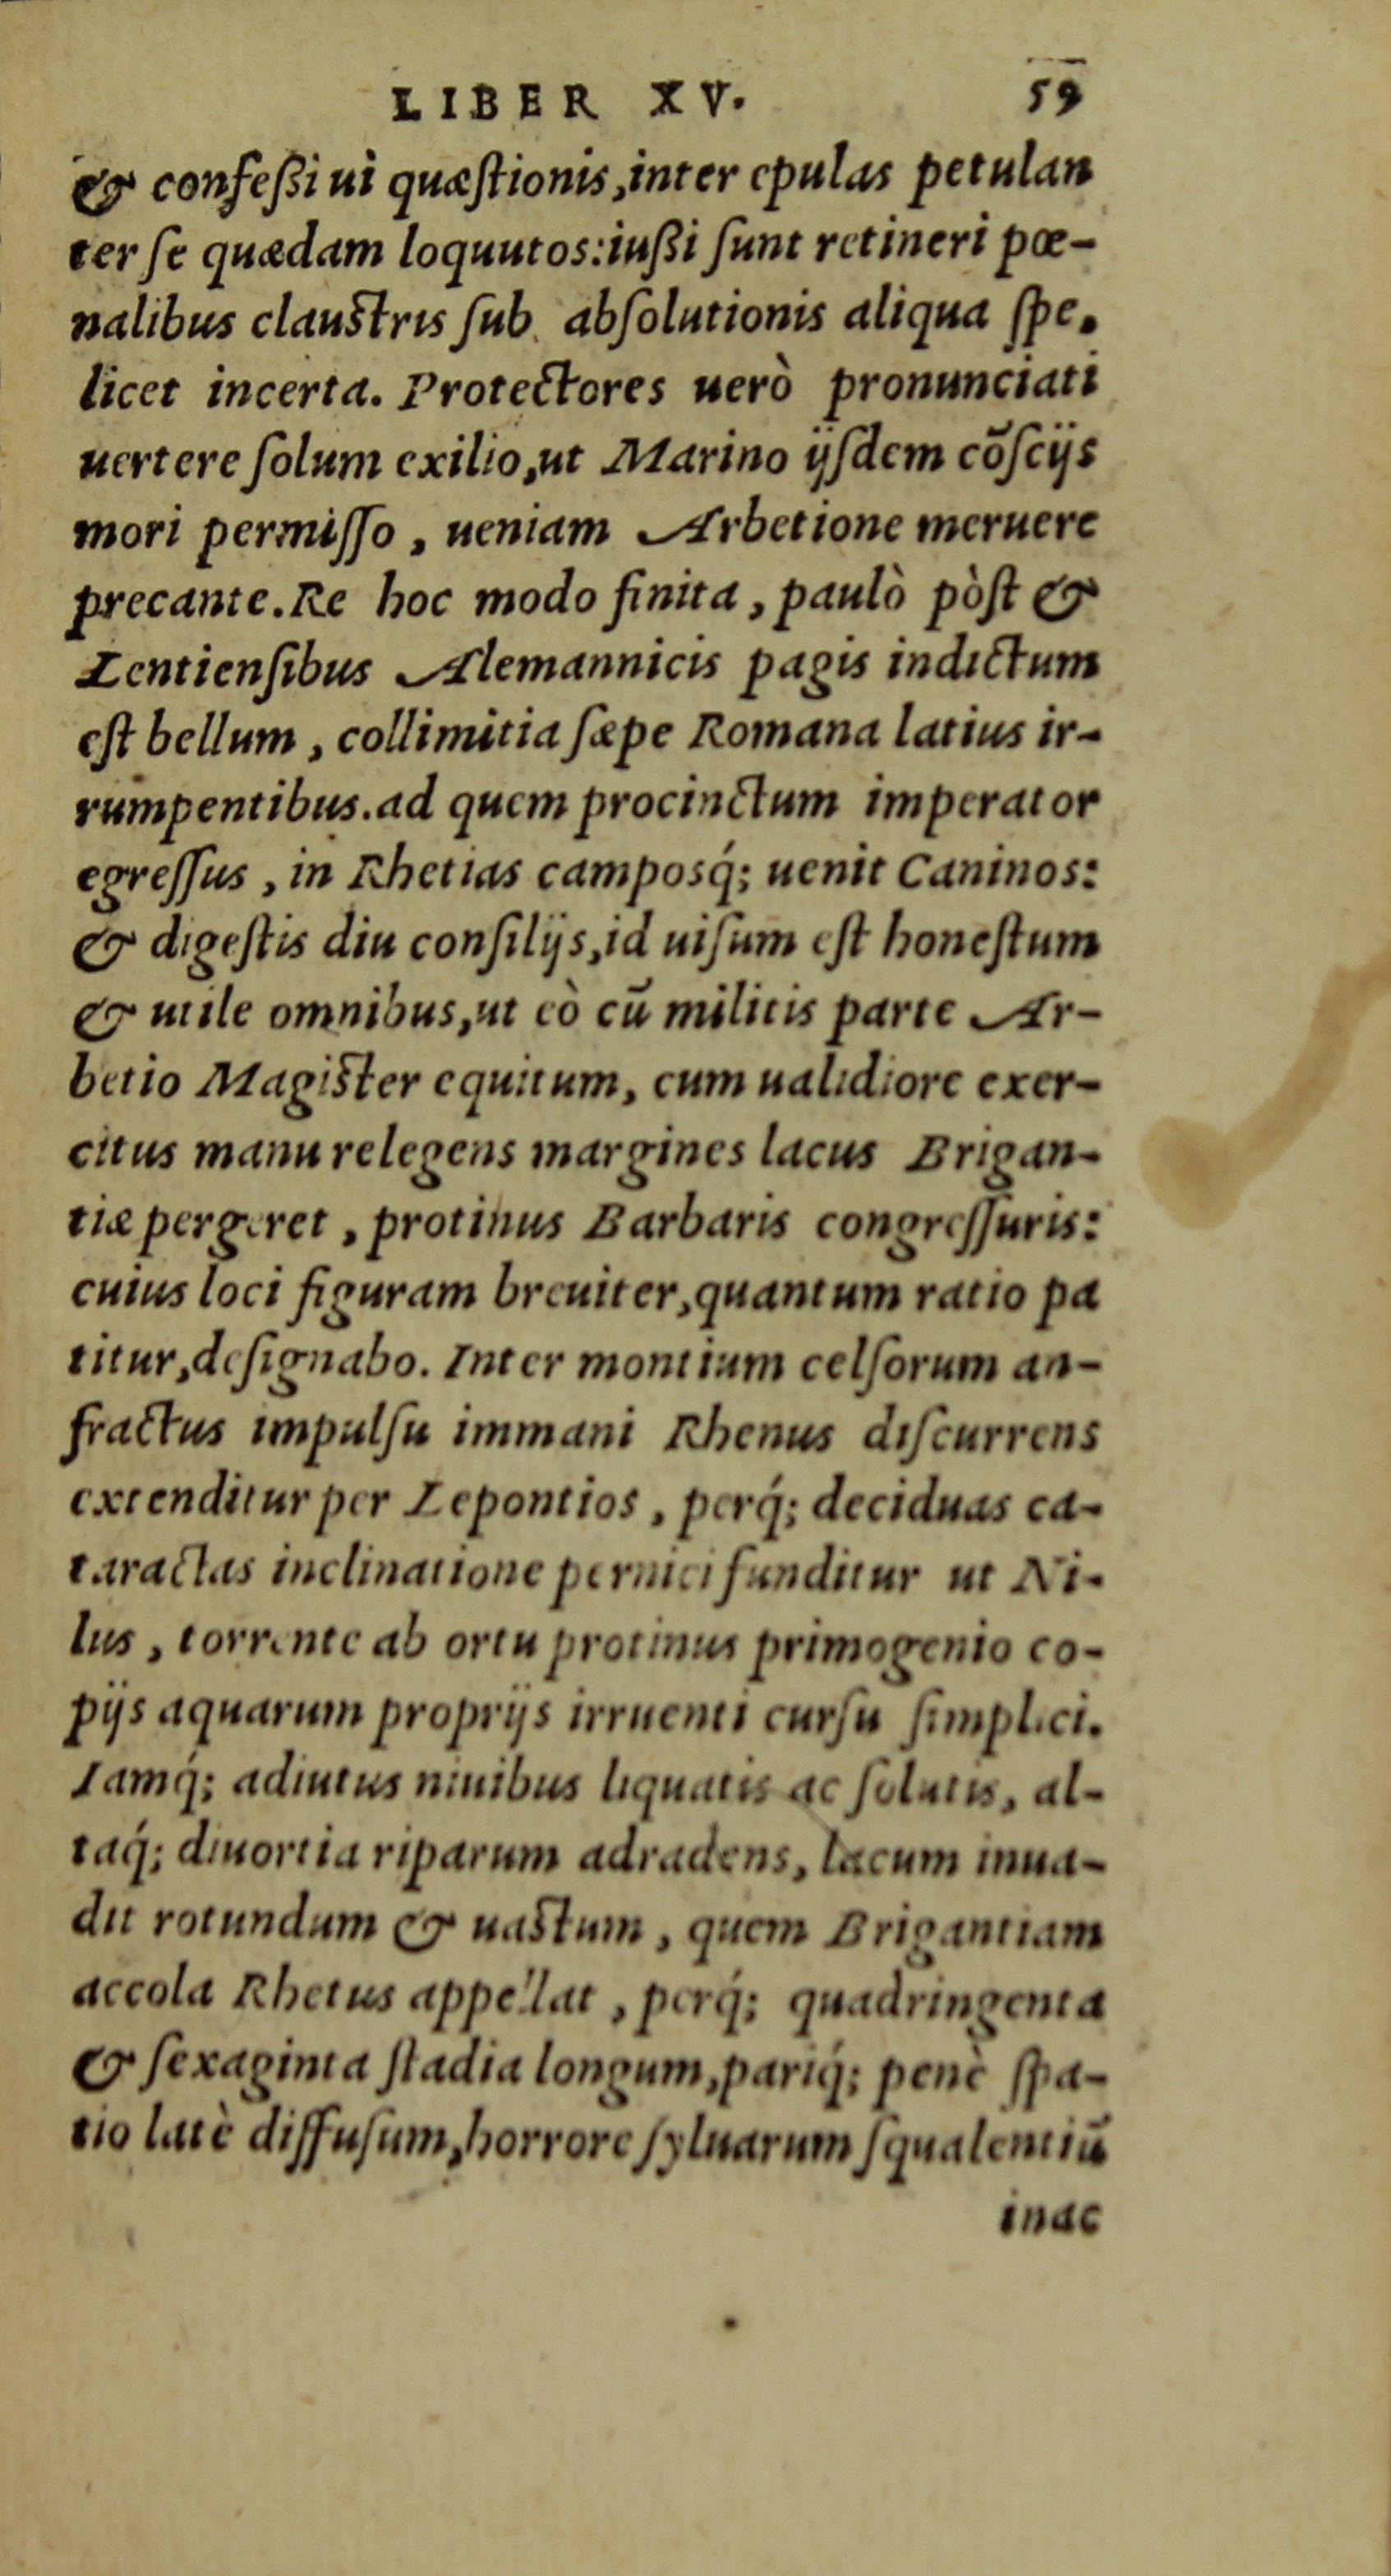 LIBER XV. 59
& confeßi ui quæſtionis,inter epulas petulan
ter ſe quædam loquutos:iußi ſunt retineri pœ-
nalibus clauſtris ſub abſolutionis aliqua ſpe.
licet incerta. Protectores uerò pronunciati
uertere ſolum exilio,ut Marino ijſdem cõſcijs
mori permiſſo, ueniam Arbetione meruere
precante.Re hoc modo finita, paulò pòſt &
Lentienſibus Alemannicis pagis indictum
eſt bellum, collimitia ſæpe Romana latius ir-
rumpentibus.ad quem procinctum imperator
egreſſus, in Rhetias camposq́; uenit Caninos:
& digeſtis diu conſilijs,id uiſum eſt honeſtum
& utile omnibus,ut eò cũ militis parte Ar-
betio Magiſter equitum, cum ualidiore exer-
citus manu relegens margines lacus Brigan-
tiæ pergeret, protinus Barbaris congreſſuris:
cuius loci figuram breuiter,quantum ratio pa
titur,deſignabo. Inter montium celſorum an-
fractus impulſu immani Rhenus diſcurrens
extenditur per Lepontios, perq́; deciduas ca-
taractas inclinatione pernici funditur ut Ni-
lus, torrente ab ortu protinus primogenio co-
pijs aquarum proprijs irruenti curſu ſimplici.
Iamq́; adiutus niuibus liquatis ac ſolutis, al-
taq́; diuortia riparum adradens, lacum inua-
dit rotundum & uaſtum, quem Brigantiam
accola Rhetus appellat, perq́; quadringenta
& ſexaginta ſtadia longum,pariq́; penè ſpa-
tio latè diffuſum,horrore ſyluarum ſqualentiũ
inac